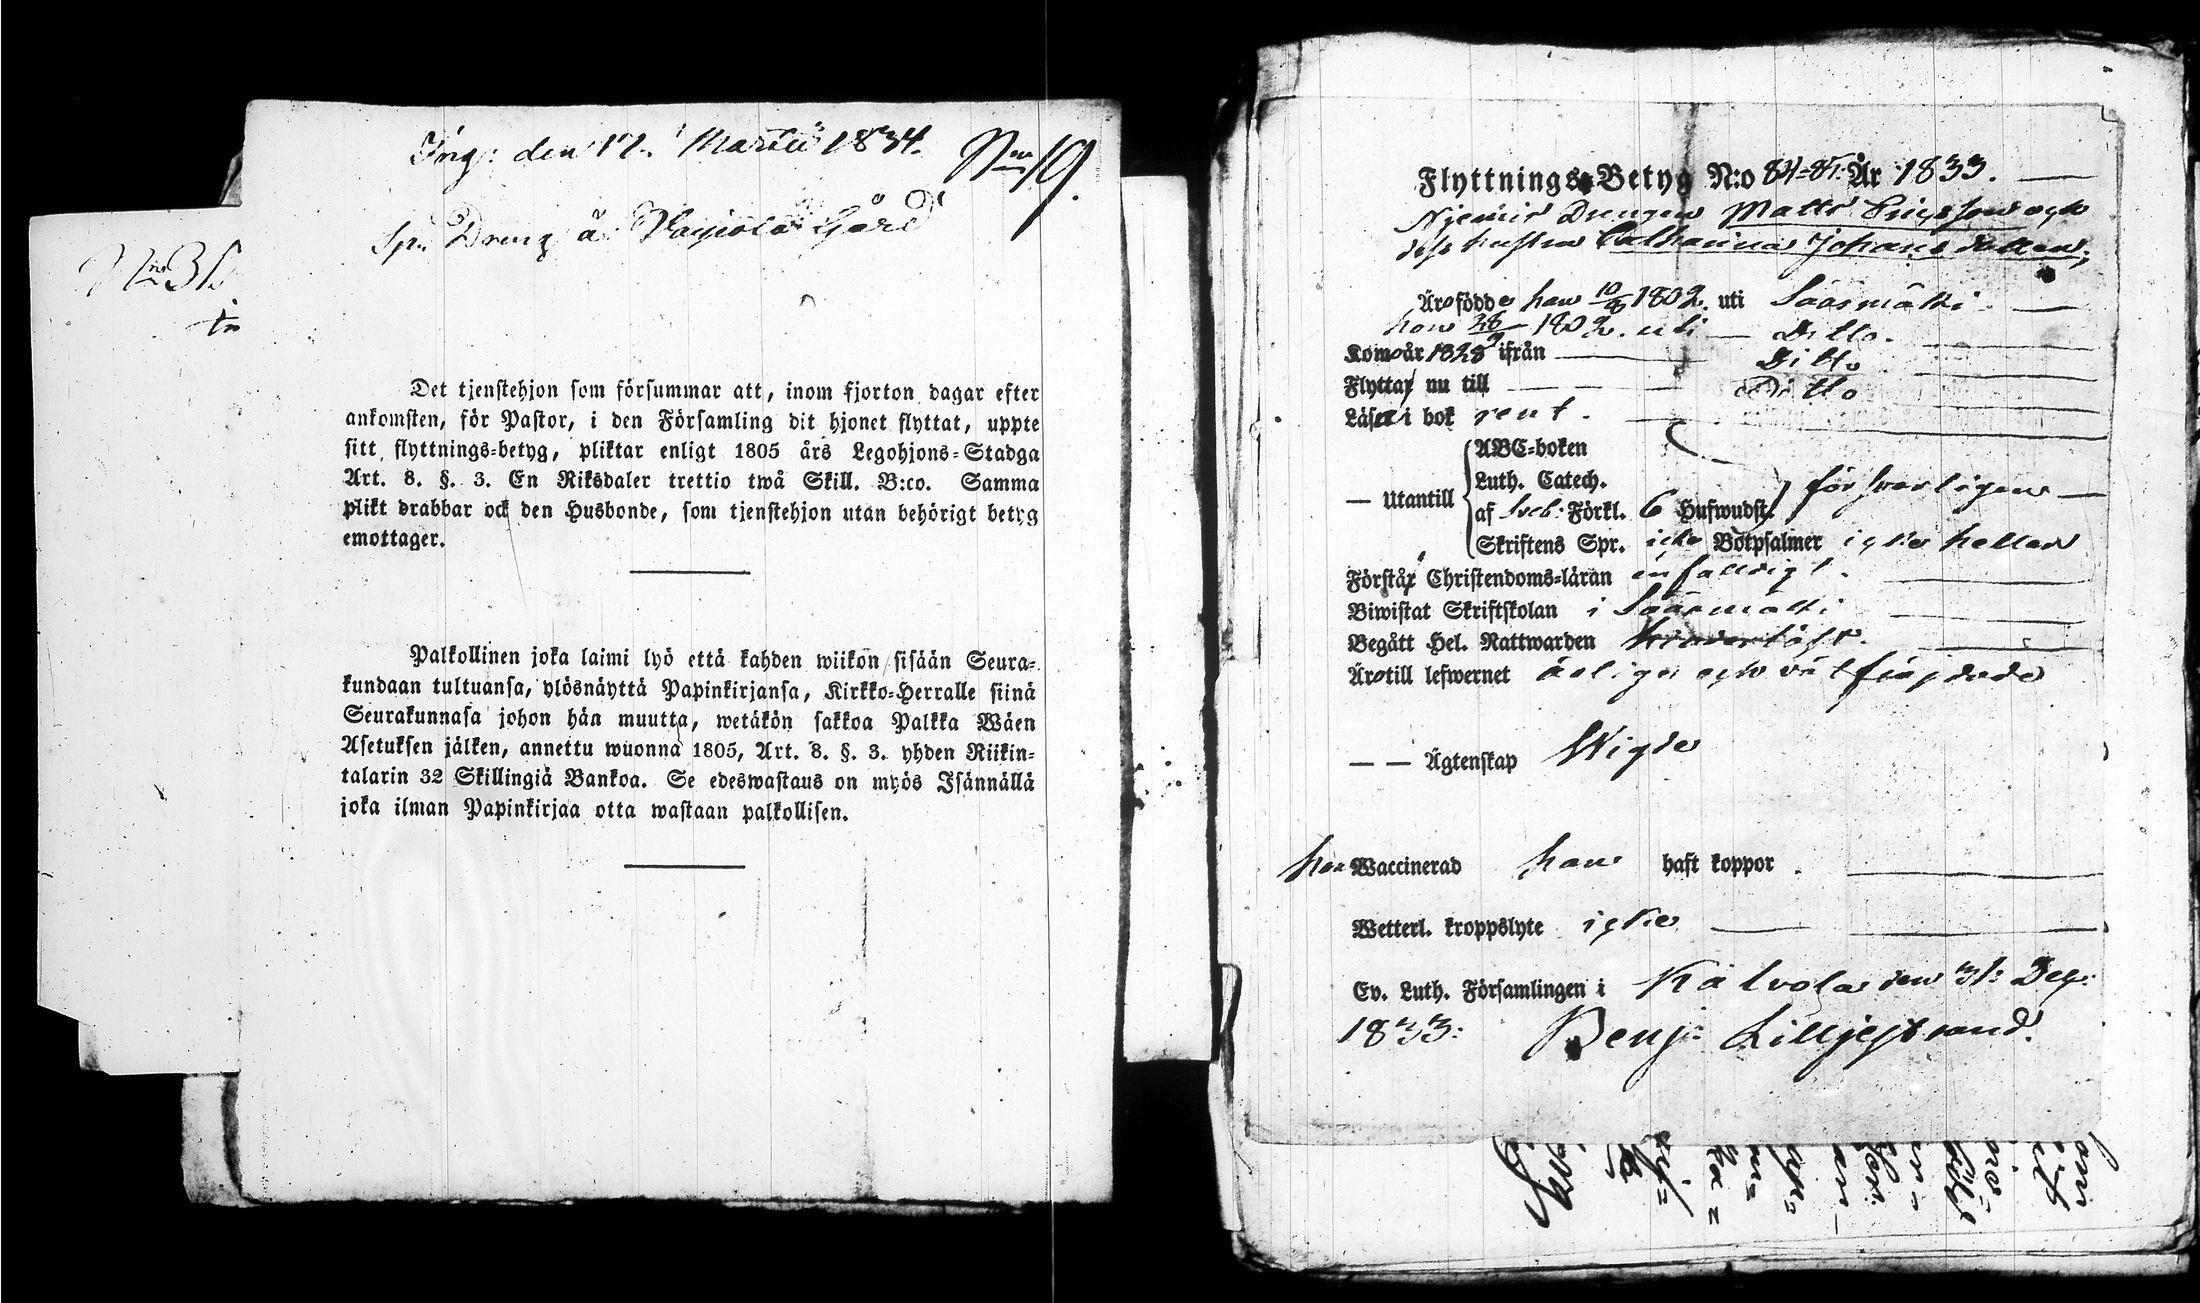 Ing: den 17. Martii 1834. Nro 19.
Sp. Dreng å Wahiala Gård
Nro 35
Det tjenstehjon som försummar att, inom fjorton dagar efter
ankomsten, för Pastor, i den Församling dit hjonet flyttat, uppte
sitt flyttnings-betyg, pliktar enligt 1805 års Legohjons-Stadga
Art. 8. §. 3. En Riksdaler trettio twå Skill. B:co. Samma
plikt drabbar ock den Husbonde, som tjenstehjon utan behörigt betyg
emottager.
Palkollinen joka laimi lyö että kahden wiikon sisään Seura-
kundaan tultuansa, ylösnäyttä Papinkirjansa, Kirkko-Herralle siinä
Seurakunnasa johon hän muutta, wetäkön sakkoa Palkka Wäen
Asetuksen jälken, annettu wuonna 1805, Art. 8. §. 3. yhden Riikin-
talarin 32 Skillingiä Bankoa. Se edeswastaus on myös Isännällä
joka ilman Papinkirjaa otta wastaan palkollisen.
Flyttnings-Betyg N:o 84-85. År 1833.
Drengen Matts Ericsson och
dess hustru Catharina Johansdotter,
Äro födde han 10/8 1802. uti Sääsmäki
hon 28/9 1802. uti Ditto.
Komo år 1828 ifrån Ditto
Flytta nu till Ditto
Läsa i bok rent.
— Utantill
ABC-boken
Luth. Catech.
af Sveb. Förkl. 6 Hufwudst. försvarligen
Skriftens Spr. icke Botpsalmer icke heller
Förstå Christendoms-läran enfaldigt.
Biwistat Skriftskolan i Sääsmäki
Begått Hel. Nattwarden
Äro till lefwernet ärlige och välfräjdade
— — Ägtenskap Wigde
hon Waccinerad han haft koppor.
Wetterl. kroppslyte icke
Ev. Luth. Församlingen i Kalvola den 31: Dec:
1833: Benj: Lilljestrand.